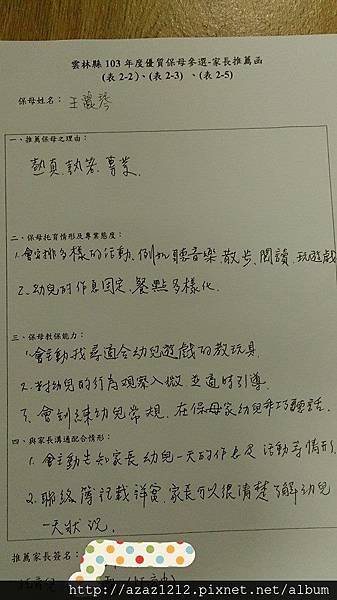 雲林縣 103 年度優質保母參選-家長推薦函
(表 2-2)、(表 2-3) 、(表 2-5)
保母姓名：王
一、推薦保母之理由：
熱真.執著.專業.
二、保母托育情形及專業態度：
1.會安排多樣的活動.例如聽音樂.散步.閱讀.玩遊戲
2.幼兒的作息固定.餐點多樣化.
三、保母教保能力：
1.會主動找尋適合幼兒遊戲的教玩具.
2.對幼兒的行為觀察入微並適時引導.
3.會訓練幼兒常規.在保母家幼兒乖巧聽話.
四、與家長溝通配合情形：
1.會主動告知家長幼兒一天的作息及活動等情形
2.聯絡簿記載詳實.家長可以很清楚了解幼兒
一天狀況.
推薦家長簽名：
http://azaz1212.pixnet.net/album